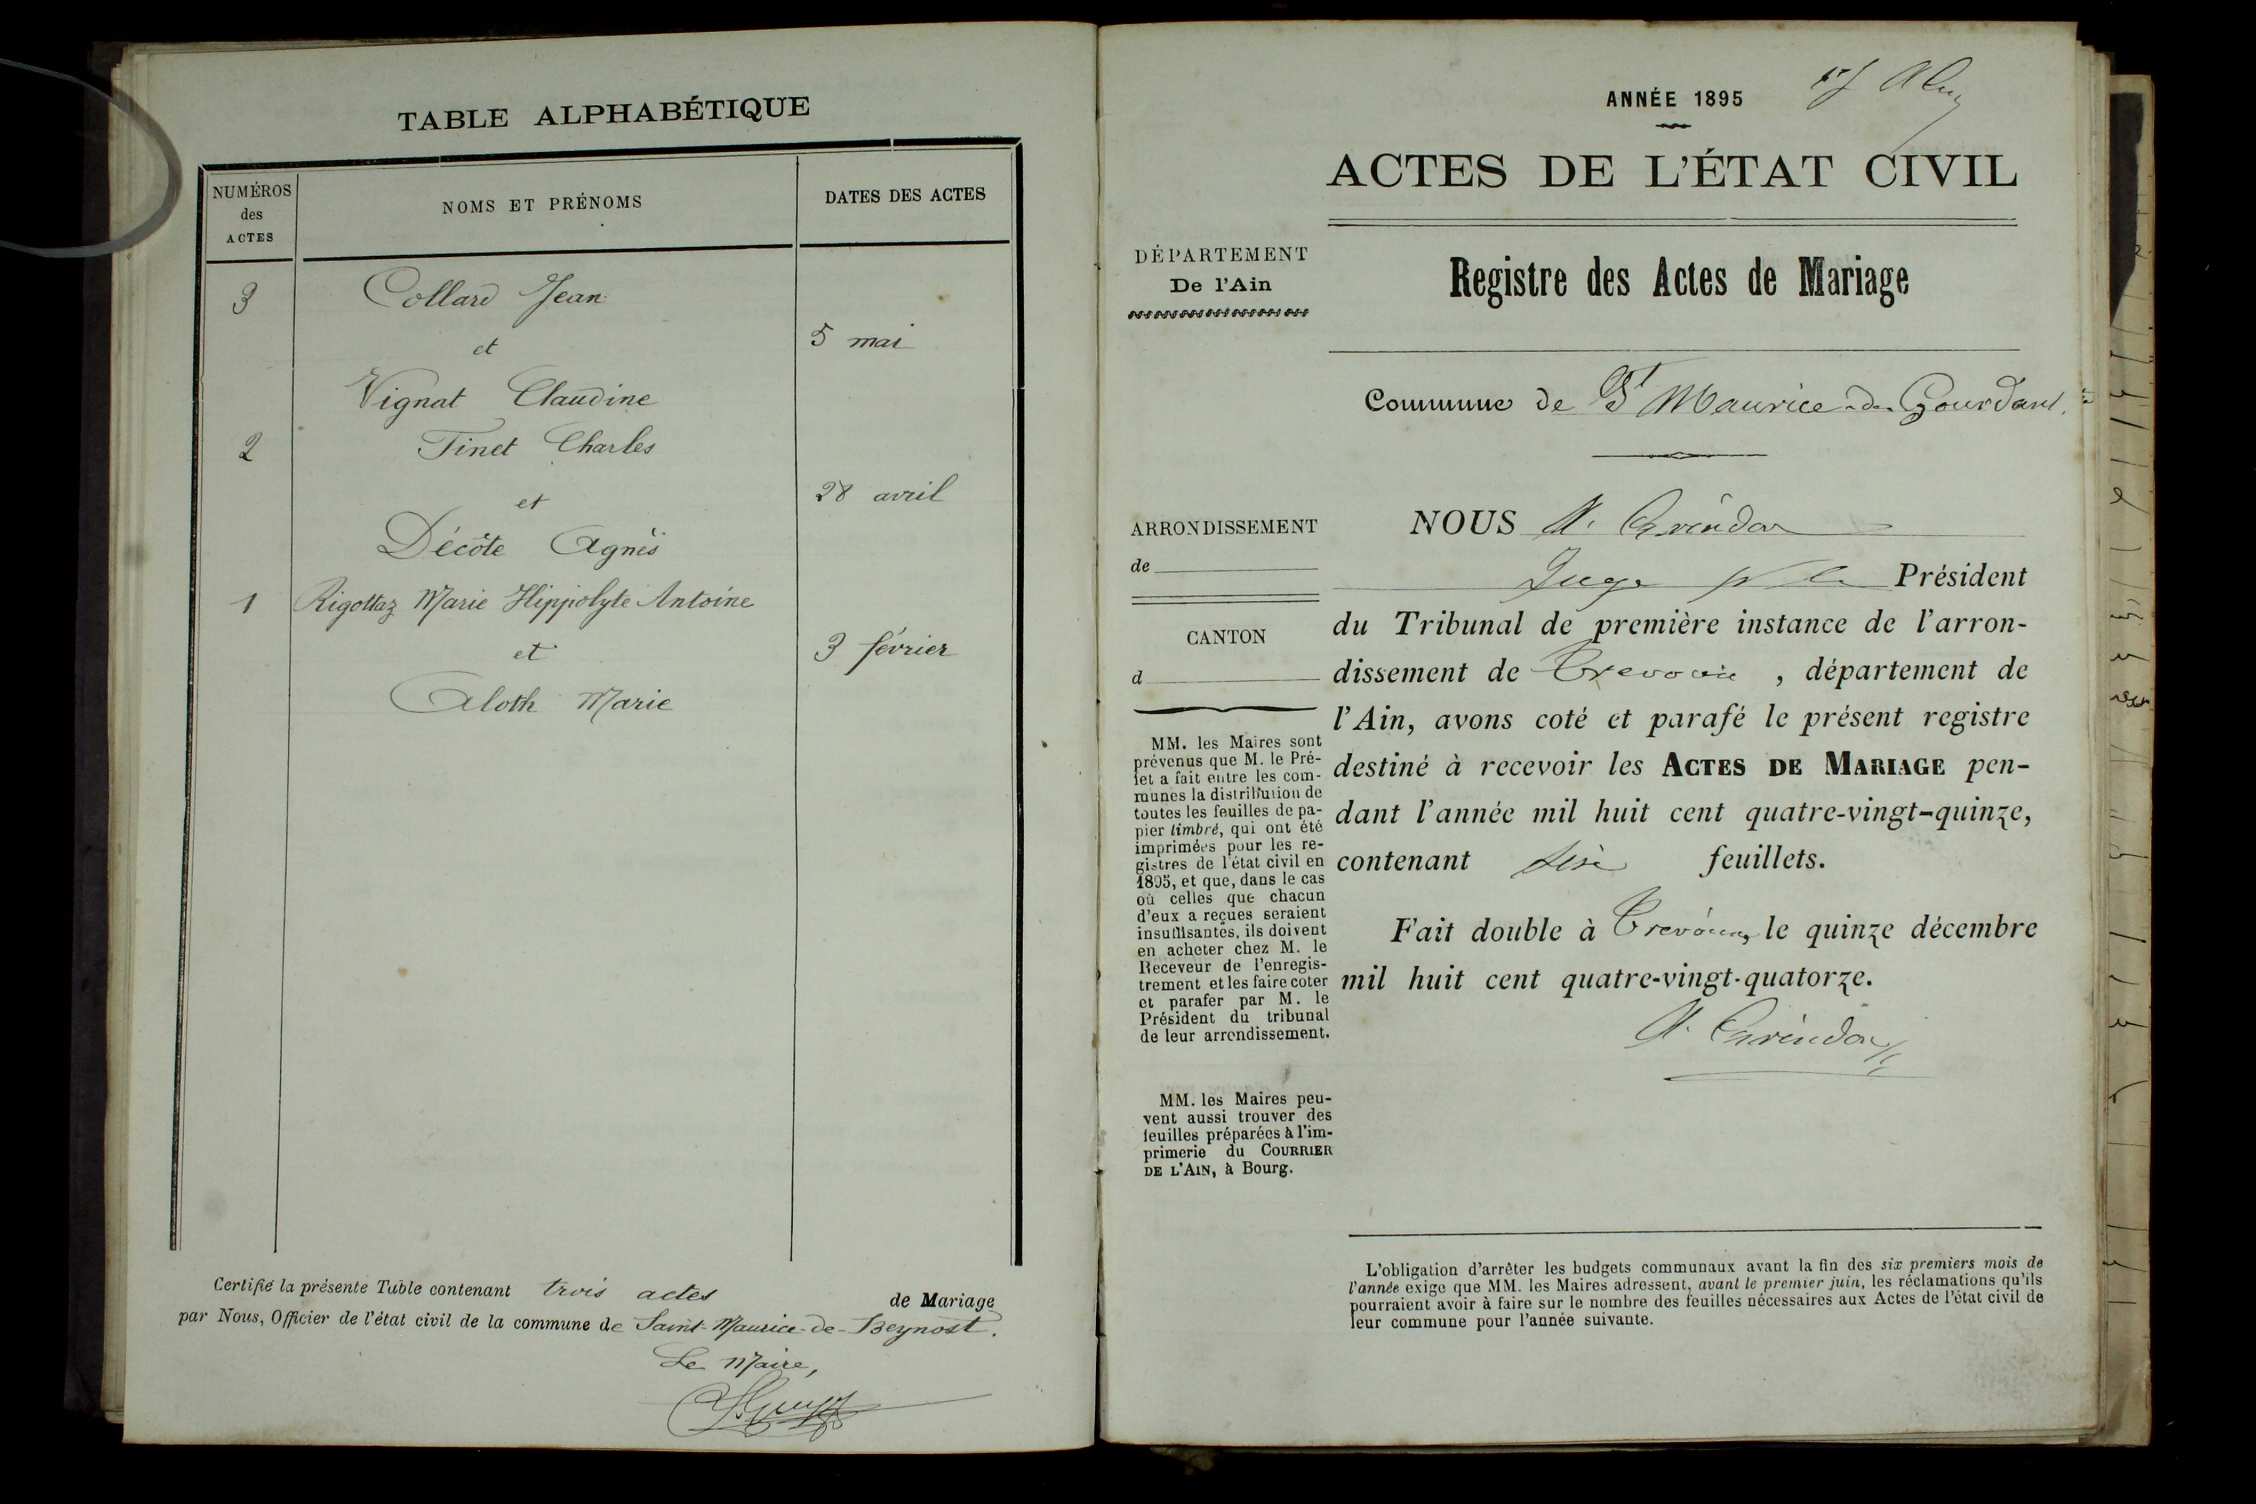 TABLE ALPHABÉTIQUE
NUMÉROS
des
ACTES
NOMS ET PRÉNOMS
DATES DES ACTES
3 Collard Jean
et
5 mai
Vignat Claudine
2 Tinet Charles
et
28 avril
Décôte Agnès
1 Rigottaz Marie Hippolyte Antoine
et
3 février
Aloth Marie
Certifié la présente Table contenant trois actes de Mariage
par Nous, Officier de l'état civil de la commune de Saint-Maurice-de-Beynost.
Le Maire,
ANNÉE 1895
ACTES DE L'ÉTAT CIVIL
DÉPARTEMENT
De l'Ain
Registre des Actes de Mariage
Commune de St Maurice de Gourdans
ARRONDISSEMENT
de
CANTON
d
MM. les Maires sont
prévenus que M. le Pré-
fet a fait entre les com-
munes la distribution de
toutes les feuilles de pa-
pier timbré, qui ont été
imprimées pour les re-
gistres de l'état civil en
1895, et que, dans le cas
où celles que chacun
d'eux a reçues seraient
insuffisantes, ils doivent
en acheter chez M. le
Receveur de l'enregis-
trement et les faire coter
et parafer par M. le
Président du tribunal
de leur arrondissement.
MM. les Maires peu-
vent aussi trouver des
feuilles préparées à l'im-
primerie du COURRIER
DE L'AIN, à Bourg.
NOUS
Juge Président
du Tribunal de première instance de l'arron-
dissement de Trevoux , département de
l'Ain, avons coté et parafé le présent registre
destiné à recevoir les ACTES DE MARIAGE pen-
dant l'année mil huit cent quatre-vingt-quinze,
contenant feuillets.
Fait double à Trevoux, le quinze décembre
mil huit cent quatre-vingt-quatorze.
L'obligation d'arrêter les budgets communaux avant la fin des six premiers mois de
l'année exige que MM. les Maires adressent, avant le premier juin, les réclamations qu'ils
pourraient avoir à faire sur le nombre des feuilles nécessaires aux Actes de l'état civil de
leur commune pour l'année suivante.